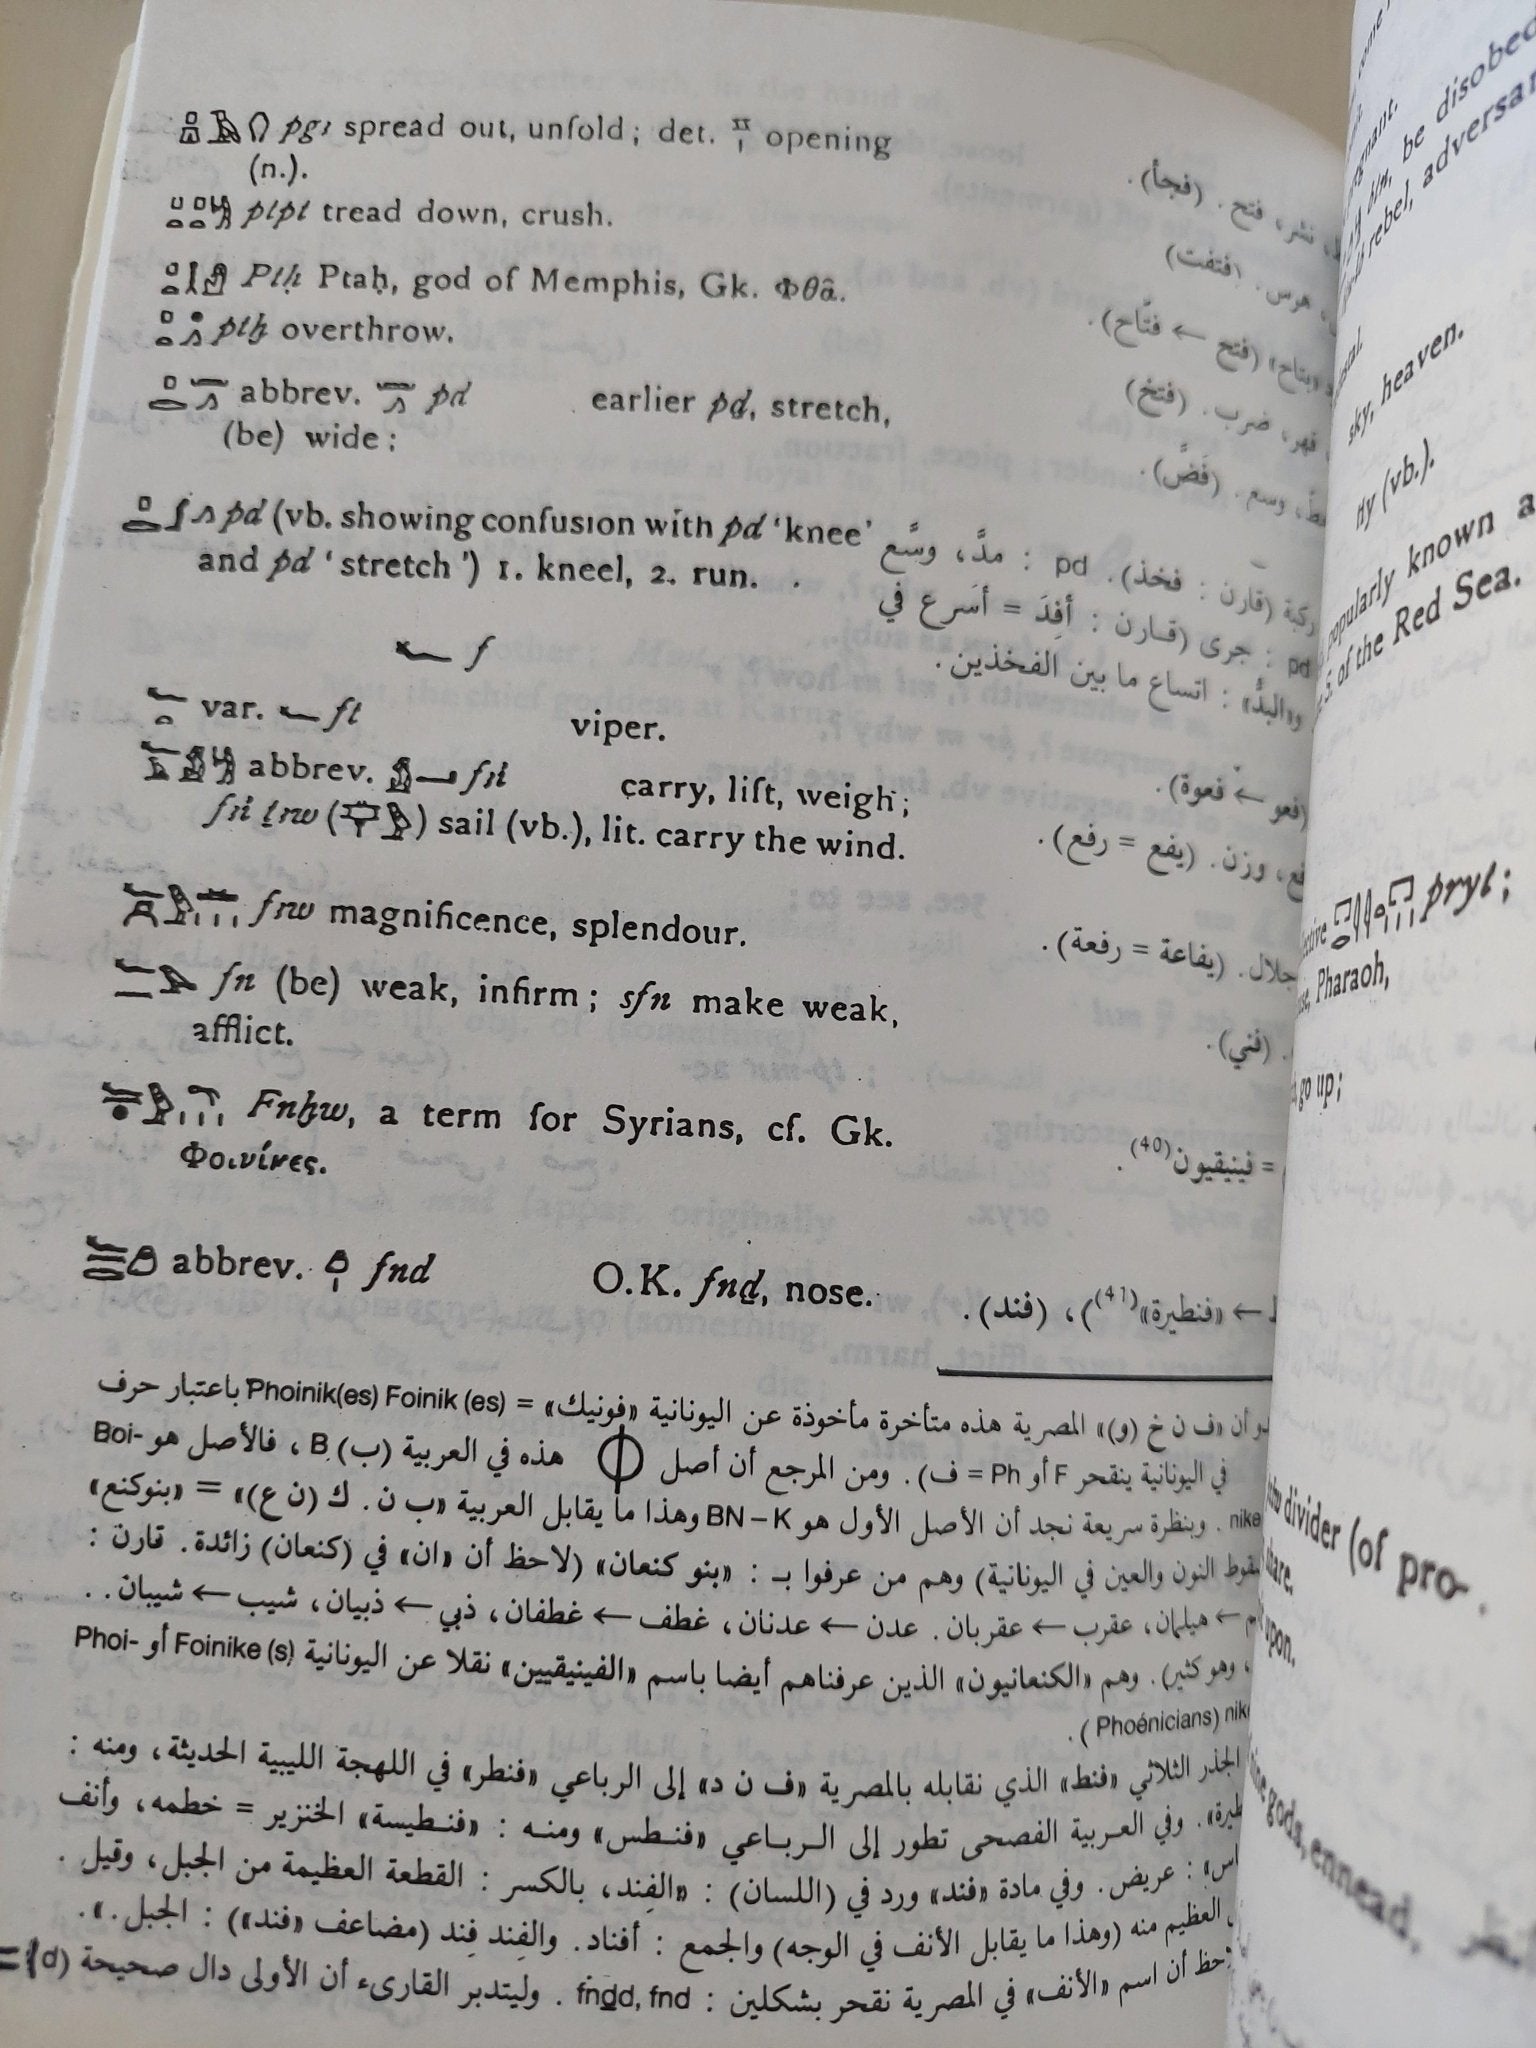 pgꜣ spread out, unfold; det. opening
(n.).
نشر، فتح. (فجأ).
ptpt tread down, crush.
هرس. (فتفت)
Ptḥ Ptaḥ, god of Memphis, Gk. Φθᾶ.
«بتاح» (فتح ← فتّاح).
ptḫ overthrow.
قهر، ضرب. (فتخ)
abbrev. pd earlier pḏ, stretch,
(be) wide;
وسع. (فَضَّ).
pd (vb. showing confusion with pd 'knee'
and pd 'stretch') 1. kneel, 2. run.
ركبة (قارن : فخذ). pd : مدَّ، وسَّع
pd : جرى (قارن : أفِدَ = أسَرع في
و«البدُّ» : اتساع ما بين الفخذين.
f
var. ft viper.
(فعو ← فعوة).
abbrev. fꜣỉ carry, lift, weigh;
fꜣỉ ṯꜣw () sail (vb.), lit. carry the wind.
وزن. (يفع = رفع).
fꜣw magnificence, splendour.
جلال. (يفاعة = رفعة).
fn (be) weak, infirm; sfn make weak,
afflict.
(فني).
Fnḫw, a term for Syrians, cf. Gk.
Φοινίκες.
= فينيقيون(40).
abbrev. fnd O.K. fnḏ, nose.
← «فنطيرة»(41))، (فند).
أن «ف ن خ (و)» المصرية هذه متأخرة مأخوذة عن اليونانية «فونيك» = Phoinik(es) Foinik (es) باعتبار حرف
في اليونانية ينقحر F أو Ph = ف). ومن المرجع أن أصل Φ هذه في العربية (ب) B، فالأصل هو Boi-
nike. وبنظرة سريعة نجد أن الأصل الأول هو BN – K وهذا ما يقابل العربية «ب ن. ك (ن ع)» = «بنوكنع»
النون والعين في اليونانية) وهم من عرفوا بـ : «بنو كنعان» (لاحظ أن «ان» في (كنعان) زائدة. قارن :
← هيلمان، عقرب ← عقربان. عدن ← عدنان، غطف ← غطفان، ذبي ← ذبيان، شيب ← شيبان. .
وهو كثير). وهم «الكنعانيون» الذين عرفناهم أيضا باسم «الفينيقيين» نقلا عن اليونانية Foinike (s) أو Phoi-
nik (Phoénicians).
الجذر الثلاثي «فنط» الذي نقابله بالمصرية «ف ن د» إلى الرباعي «فنطر» في اللهجة الليبية الحديثة، ومنه :
وفي العربية الفصحى تطور إلى الرباعي «فنطس» ومنه : «فنطيسة» الخنزير = خطمه، وأنف
: عريض. وفي مادة «فند» ورد في (اللسان) : «الفِند، بالكسر : القطعة العظيمة من الجبل، وقيل.
العظيم منه (وهذا ما يقابل الأنف في الوجه) والجمع : أفناد. والفِند فِند (مضاعف «فند») : الجبل.».
أن اسم «الأنف» في المصرية نقحر بشكلين : fnḏd, fnd. وليتدبر القارىء أن الأولى دال صحيحة (d) =
be disobed
rebel, adversar
sky, heaven.
(vb.).
popularly known a
of the Red Sea.
pryt;
Pharaoh,
go up;
divider (of pro-
share.
upon.
gods, ennead.